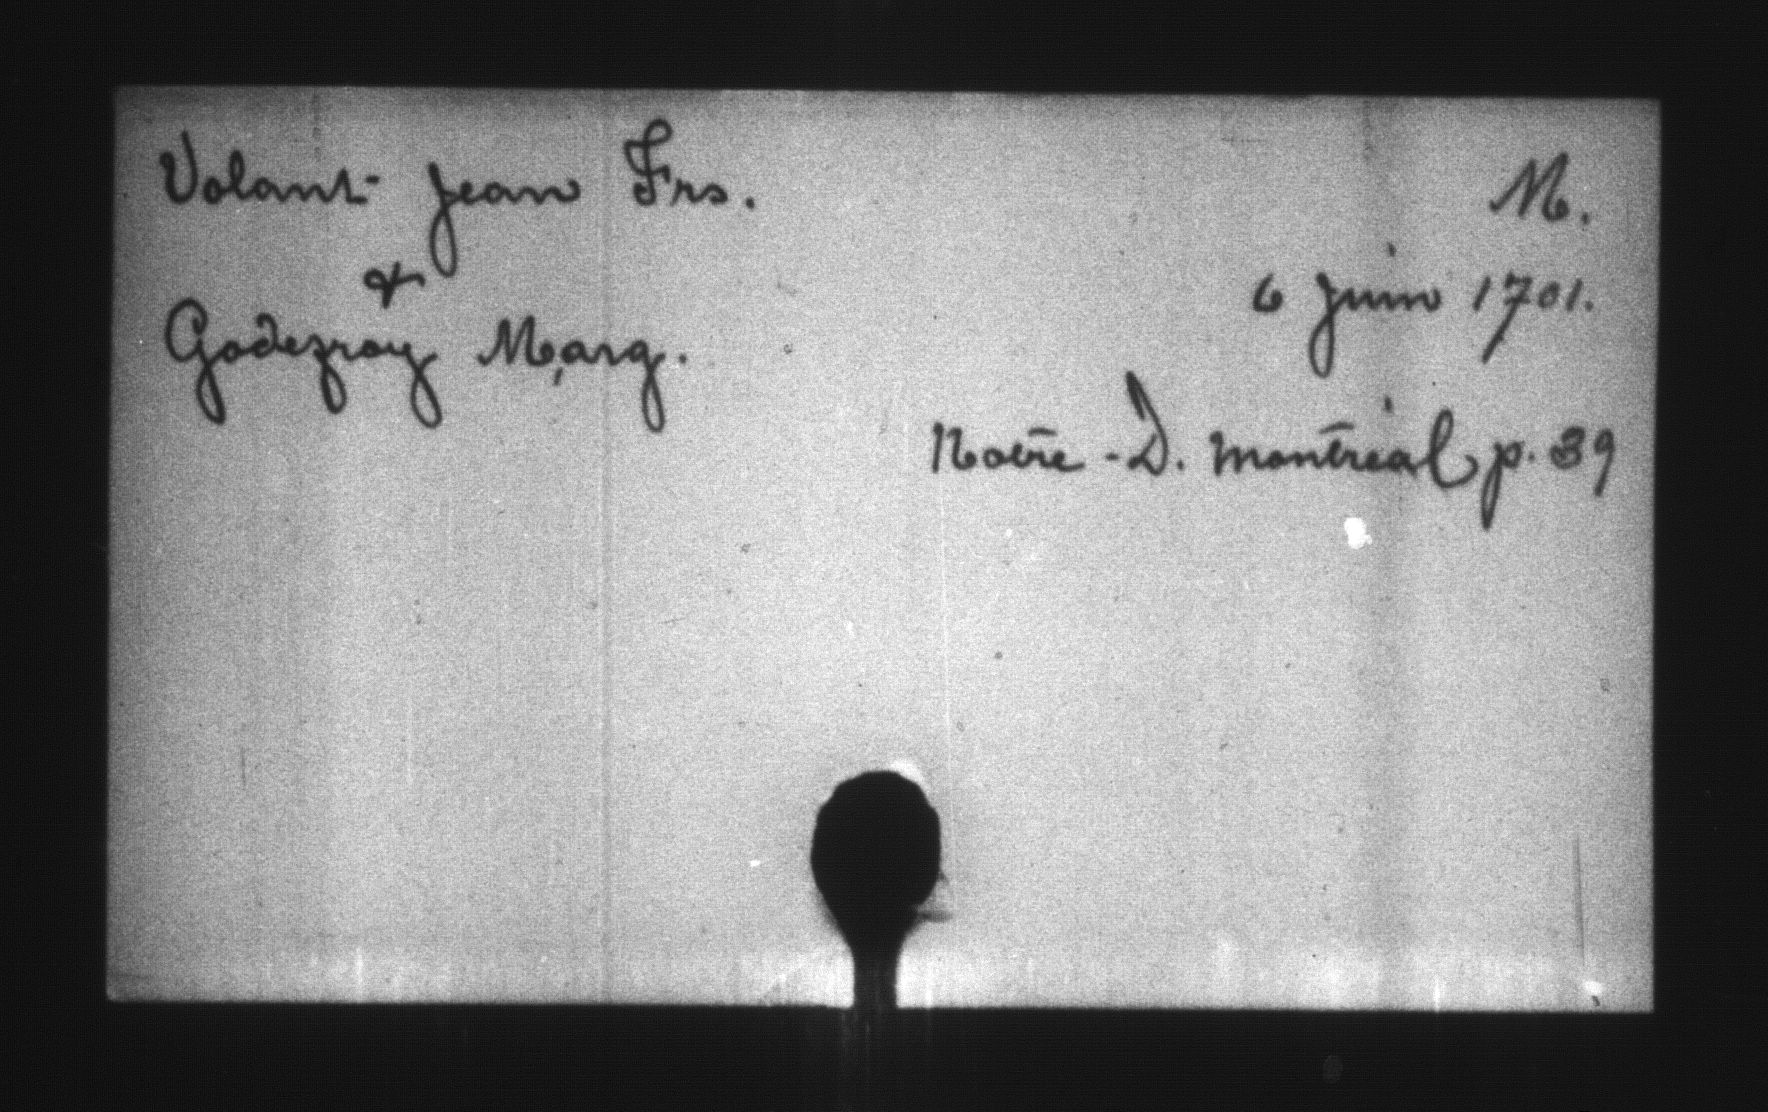 Volant Jean Frs.
M.
&
6 Juin 1701.
Godefroy Marg.
Notre-D. Montréal p. 39